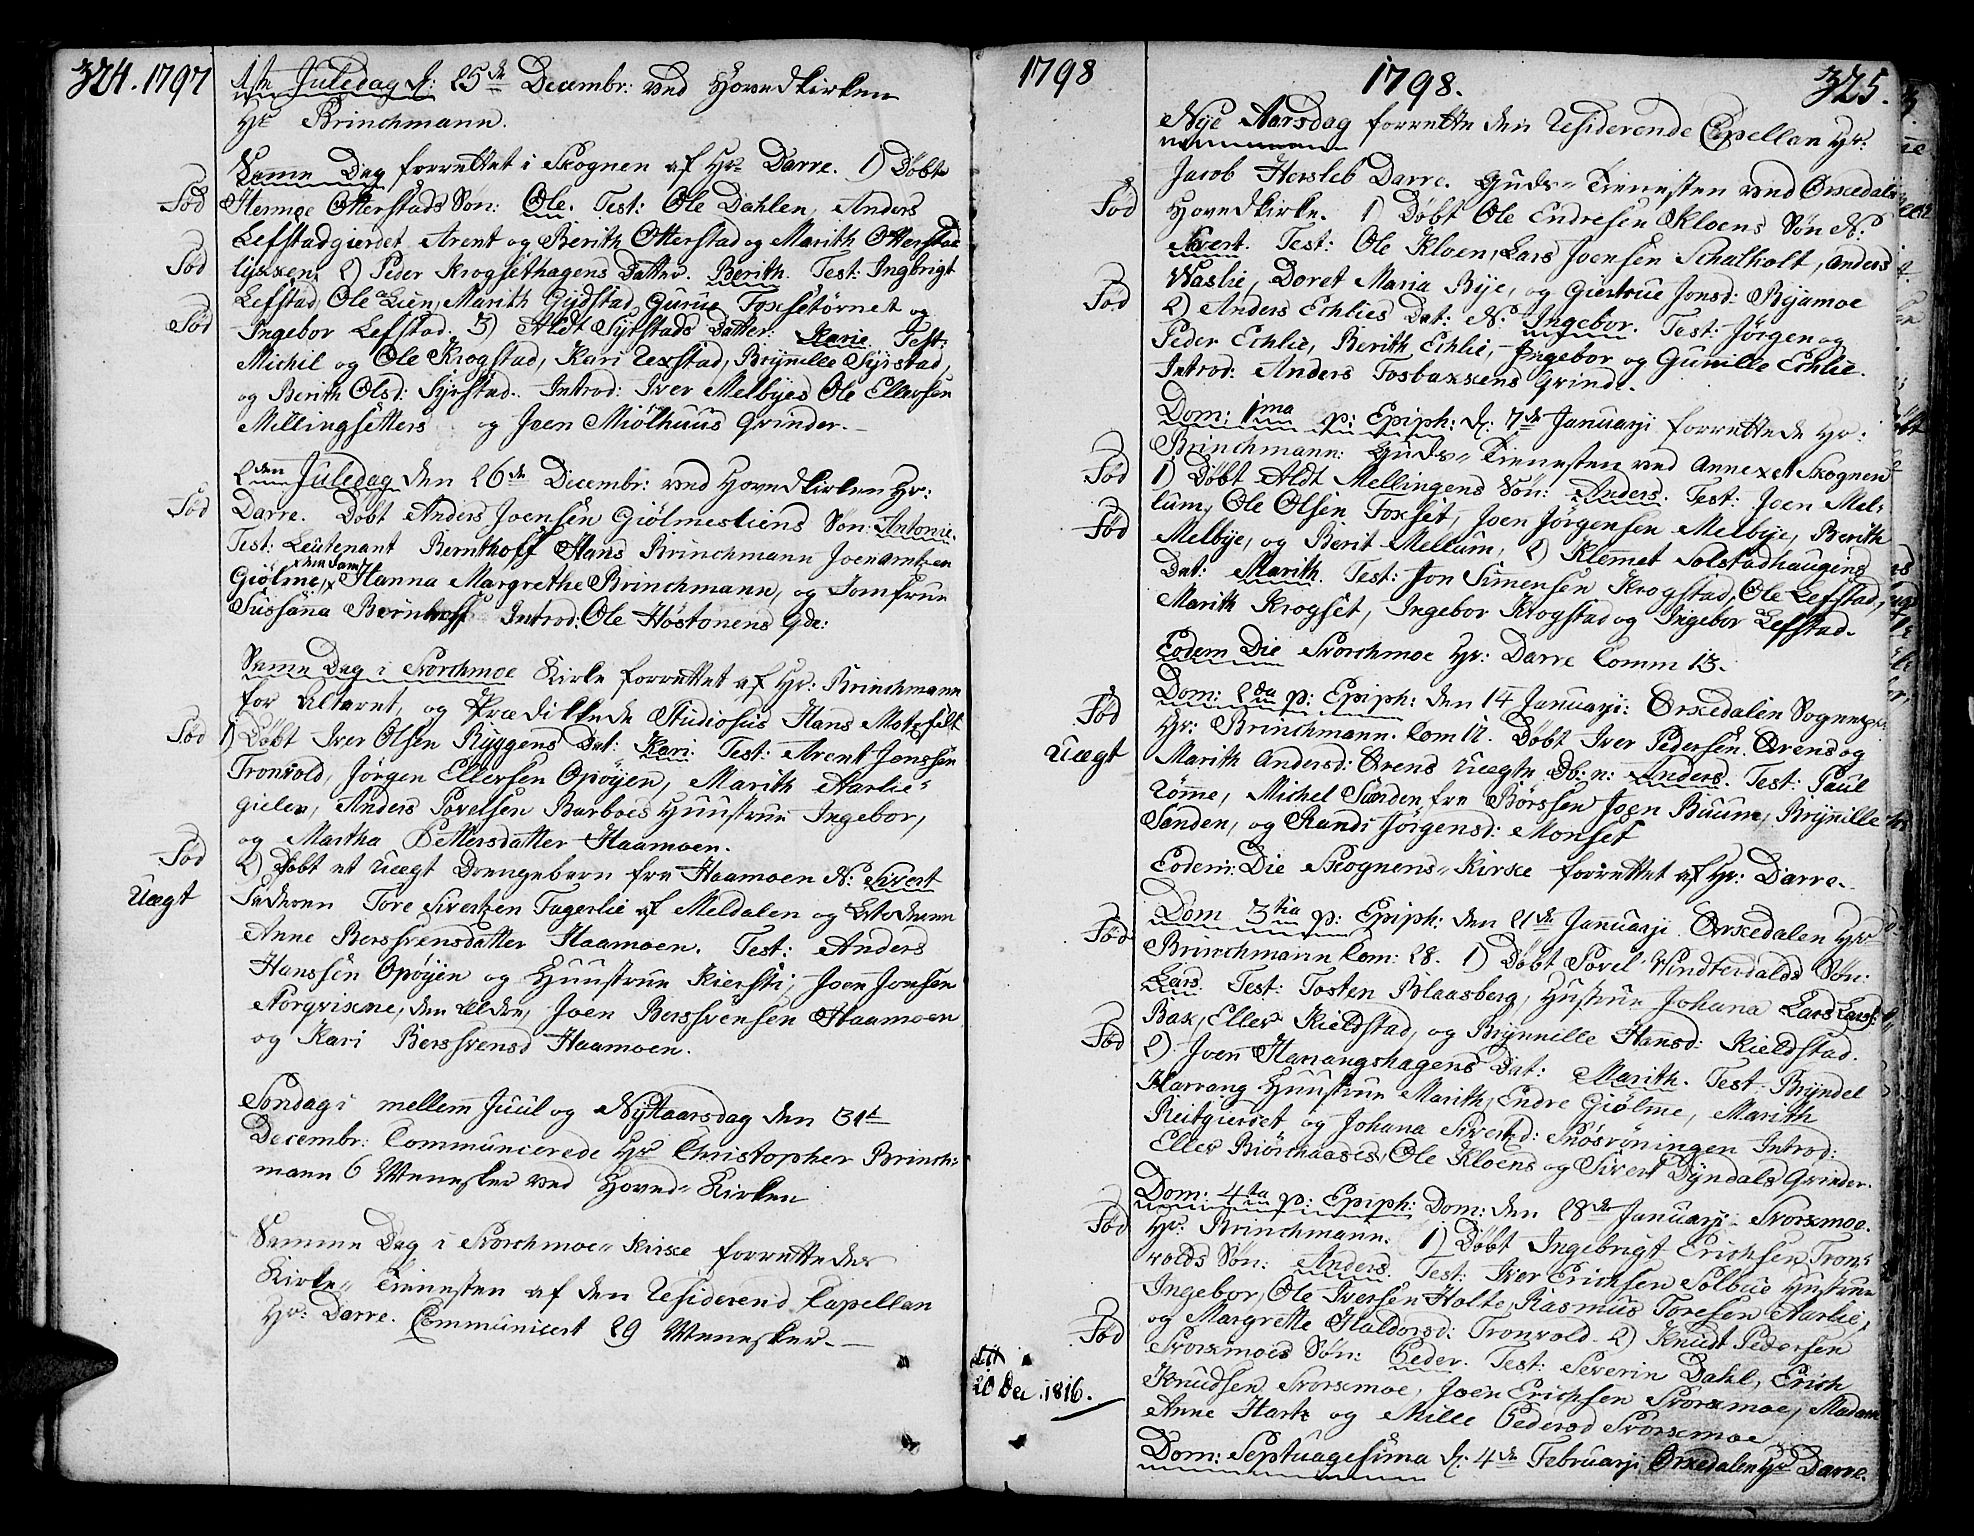 324. 1797
1ste Juledag d: 25de Decembr: ved Hovedkirken
Hr Brinchmann.
Samme Dag forrettet i Skognen af Hr Darre. 1) Døbt
Fød
Hermoe Otterstads Søn: Ole. Test: Ole Dahlen, Anders
Lefstadgierdet Arent og Berith Otterstad og Marith Otterstad
Fød
lykken, 2) Peder Krogsethagens Datter. Berith. Test: Ingbrigt
Lefstad, Ole Lien, Marith Gydstad, Gurue Foxsetørnet og
Fød
Ingebor Lefstad. 3) Aldt Syrstads Datter. Marie. Test:
Michil og Ole Krogstad, Kari Rexstad, Brynille Syrstad,
og Berith Olsd: Syrstad. Introd: Iver Melbyes Ole Ellevsen
Mellingsetters og Joen Miølhuus Qvinder.
2den Juledag den 26de Decembr: ved Hovedkirken Hr:
Fød
Darre. Døbt Anders Joensen Giølmesliens Søn: Antonie.
Test: Leutenant Bernthoff Hans Brinchmann Joen Arntzen
Giølme, Madam Hanna Margrethe Brinchmann, og Jomfrue
Sussana Bernhoff Introd: Ole Høstonens Qde:
Samme Dag i Svorchmoe Kirke forrettet af Hr: Brinchmann
for Alteret, og Prædikkede Studiosus Hans Motzfelt
Fød
1) Døbt Iver Olsen Ryggens Dat: Kari. Test: Arent Jonssen
Tronvold, Jørgen Ellevsen Opøyen, Marith Aarlie-
gielen, Anders Povelsen Barboes Huustrue Ingebor,
og Martha Pettersdatter Haamoen.
Fød
2) Døbt et uægt Drengebarn fra Haamoen N: Sivert
Uægt
Faderen Tore Sivertzen Fagerlie af Meldalen og Moderen
Anne Berssvensdatter Haamoen. Test: Anders
Hanssen Opøyen og Huustrue Kiersti, Joen Jonsen
Norgvixne, den Eldre, Joen Berssvensen Haamoen
og Kari Berssvensd Haamoen.
Søndag i mellem Juul og Nytaarsdag den 31te
Decembr: Communicerede Hr Christopher Brinch-
mann 6 Mennesker ved Hoved-Kirken
Samme Dag i Svorchmoe-Kirke forrettedes
Kirke-Tienesten af den Residerend Capellan
Hr: Darre. Communicert 29 Mennesker.
1798
1798.
325.
Nye Aarsdag forrette den Residerende Capellan Hr:
Jacob Hersleb Darre. Guds-Tienesten ved Orkedals
Fød
Hovedkirke. 1) Døbt Ole Endresen Kloens Søn N:
Sivert. Test: Ole Kloen, Lars Joensen Schalholt, Anders
Waslie, Doret Maria Bye, og Giertrue Jonsd: Byamoe
Fød
2) Anders Echlies Dat: N: Ingebor. Test: Jørgen og
Peder Echlie, Berith Echlie, Ingebor og Gunille Echlie.
Introd: Anders Fosbakkens Qvinde.
Dom: 1ma p: Epiph: d: 7de Januarji forrettede Hr:
Brinchmann: Guds-Tienesten ved Annexet Skognen
Fød
1) Døbt Aldt Mellingens Søn: Anders. Test: Joen Mel-
lum, Ole Olsen Foxset, Joen Jørgensen Melbye, Berith
Fød
Melbye, og Berit Mellum, 2) Klemet Solstadhaugens
Dat: Marith. Test: Jon Simensen Krogstad, Ole Lefstad,
Marith Krogset, Ingebor Krogstad og Ingebor Lefstad.
Eodem Die Svorchmoe Hr: Darre Comm 13.
Dom: 2da p: Epiph: den 14 Januarji: Orkedalen Sogne
Fød
Hr: Brinchmann. Com 12. Døbt Iver Pedersen Ørens og
Uægt
Marith Andersd: Ørens Uægte Db: n: Anders. Test: Paul
Rømme, Michel Sanden fra Børssen Joen Buum, Brynille
Sanden, og Randi Jørgensd: Monset
Eodem: Die Skognens-Kirke forrettet af Hr: Darre.
Dom 3tia p: Epiph: den 21de Januarji Orkedalen Hr
Fød
Brinchmann Com: 28. 1) Døbt Povel Windterdalds Søn:
Lars. Test: Tosten Blaasberg, Hustrue Johana Lars Larss:
Bax, Ellev Kieldstad, og Brynnille Hansd: Kieldstad.
Fød
2) Joen Harrangshagens Dat: Marith. Test Bryndel
Harrang Huustrue Marith, Endre Giølme, Marith
Reitgierdet og Johana Sivertsd: Snøsrøningen Introd:
Ellev Biørchaases, Ole Kloens og Sivert Dyndals Qvinder.
Dom: 4ta p: Epiph: Dom: den 28de Januarji Svorkmoe.
Fød
Hr: Brinchmann. 1) Døbt Ingebrigt Erichsen Tron-
volds Søn: Anders. Test: Iver Erichsen Solbue Hustrue
Ingebor, Ole Iversen Holte, Rasmus Toresen Aarlie,
Fød
og Margrette Haldorsd: Tronvold. 2) Knudt Pedersen
Svorkmoes Søn: Peder. Test: Severin Dahl, Erich
20 Dec. 1816.
Knudsen Svorkmoe, Joen Erichsen Svorkmoe, Madam
Anne Hartz og Mille Pedersd Svorkmoe
Dom: Septuagesima d: 4de Februarji Orkedalen Hr Darre.